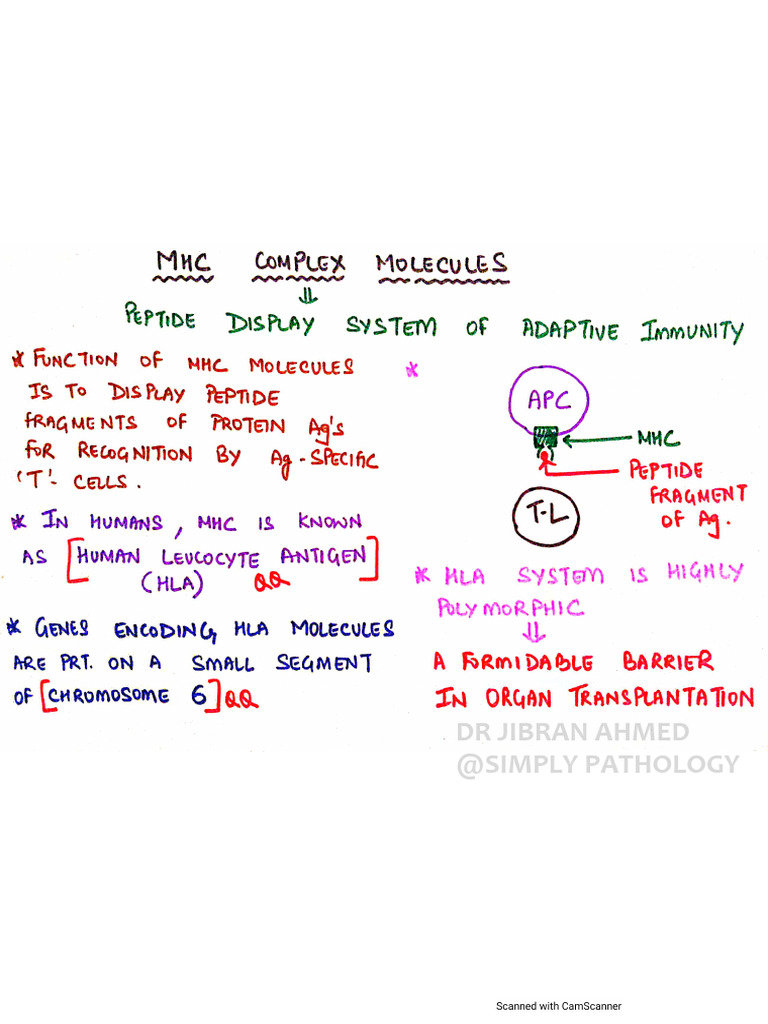 MHC COMPLEX MOLECULES
⇓
PEPTIDE DISPLAY SYSTEM OF ADAPTIVE IMMUNITY
* FUNCTION OF MHC MOLECULES
IS TO DISPLAY PEPTIDE
FRAGMENTS OF PROTEIN Ag's
FOR RECOGNITION BY Ag-SPECIFIC
'T'- CELLS.
* IN HUMANS, MHC IS KNOWN
AS [HUMAN LEUCOCYTE ANTIGEN]
(HLA) QQ
* GENES ENCODING HLA MOLECULES
ARE PRT. ON A SMALL SEGMENT
OF [CHROMOSOME 6] QQ
*
APC
MHC
PEPTIDE
FRAGMENT
OF Ag.
T-L
* HLA SYSTEM IS HIGHLY
POLYMORPHIC
⇓
A FORMIDABLE BARRIER
IN ORGAN TRANSPLANTATION
DR JIBRAN AHMED
@SIMPLY PATHOLOGY
Scanned with CamScanner